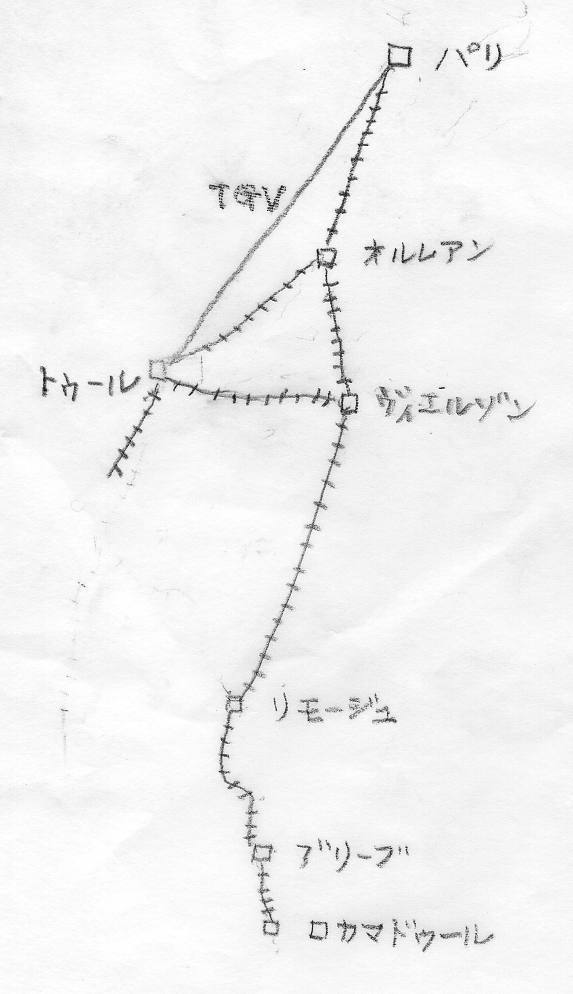 パリ
TGV
オルレアン
トゥール
ヴィエルゾン
リモージュ
ブリーブ
ロカマドゥール